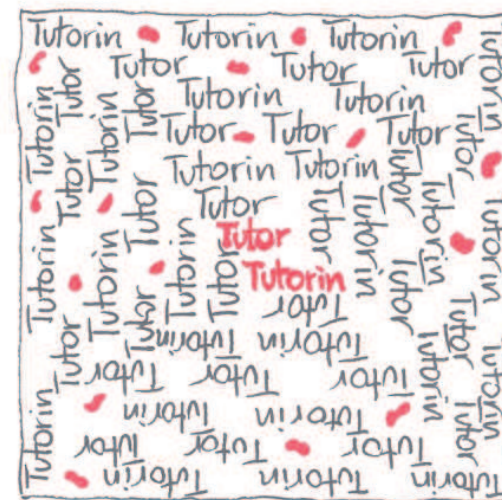 Tutorin Tutorin Tutorin
Tutor Tutor Tutor
Tutorin Tutorin
Tutor Tutor Tutor
Tutorin Tutorin
Tutor
Tutor
Tutorin
Tutorin Tutorin Tutorin
Tutor Tutor Tutor
Tutorin Tutorin
Tutor Tutor Tutor
Tutorin
Tutor
Tutorin Tutorin
Tutor Tutor Tutor
Tutorin Tutorin
Tutor Tutor
Tutorin
Tutor
Tutor
Tutorin Tutorin
Tutor Tutor Tutor
Tutorin Tutorin
Tutor Tutor Tutor
Tutorin Tutorin Tutorin